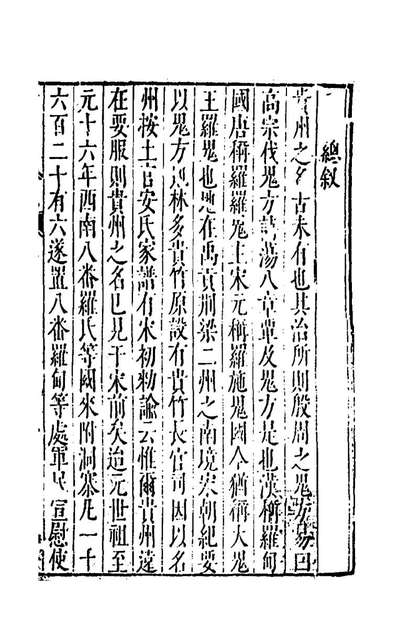 總叙
貴州之名古未有也其治所則殷周之鬼方易曰
高宗伐鬼方詩蕩八章覃及鬼方是也漢稱羅甸
國唐稱羅羅鬼主宋元稱羅施鬼國今猶稱大鬼
王羅鬼也地在禹貢荆梁二州之南境宋朝紀要
以鬼方山林多貴竹原設有貴竹長官司因以名
州按土官安氏家譜有宋初勑諭云惟爾貴州遠
在要服則貴州之名已見于宋前矣迨元世祖至
元十六年西南八番羅氏等國來附洞寨凡一千
六百二十有六遂置八番羅甸等處軍民宣慰使